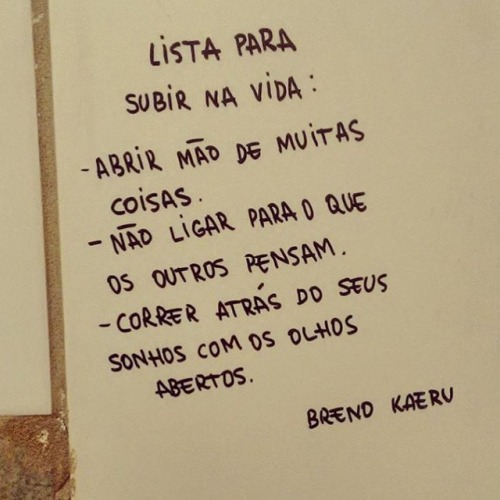 LISTA PARA
SUBIR NA VIDA:
- ABRIR MÃO DE MUITAS
COISAS.
- NÃO LIGAR PARA O QUE
OS OUTROS PENSAM.
- CORRER ATRÁS DO SEUS
SONHOS COM OS OLHOS
ABERTOS.
BREND KAERU